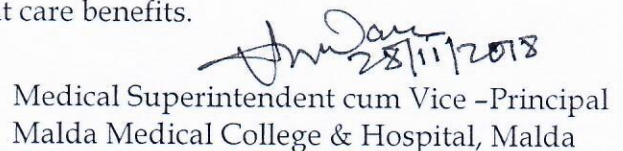 t care benefits.
28/11/2018
Medical Superintendent cum Vice –Principal
Malda Medical College & Hospital, Malda